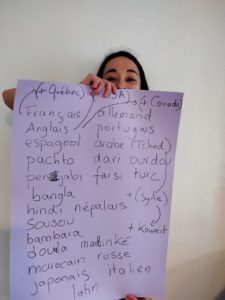 (+ Québec) (USA)
Français allemand → (+ Canada)
Anglais portugais
espagnol arabe (Tchad)
pachto dari ourdou
penjabi farsi turc
bangla + (Syrie)
hindi népalais
Sousou + Koweit
bambara
douala malinké
marocain russe
japonais italien
latin